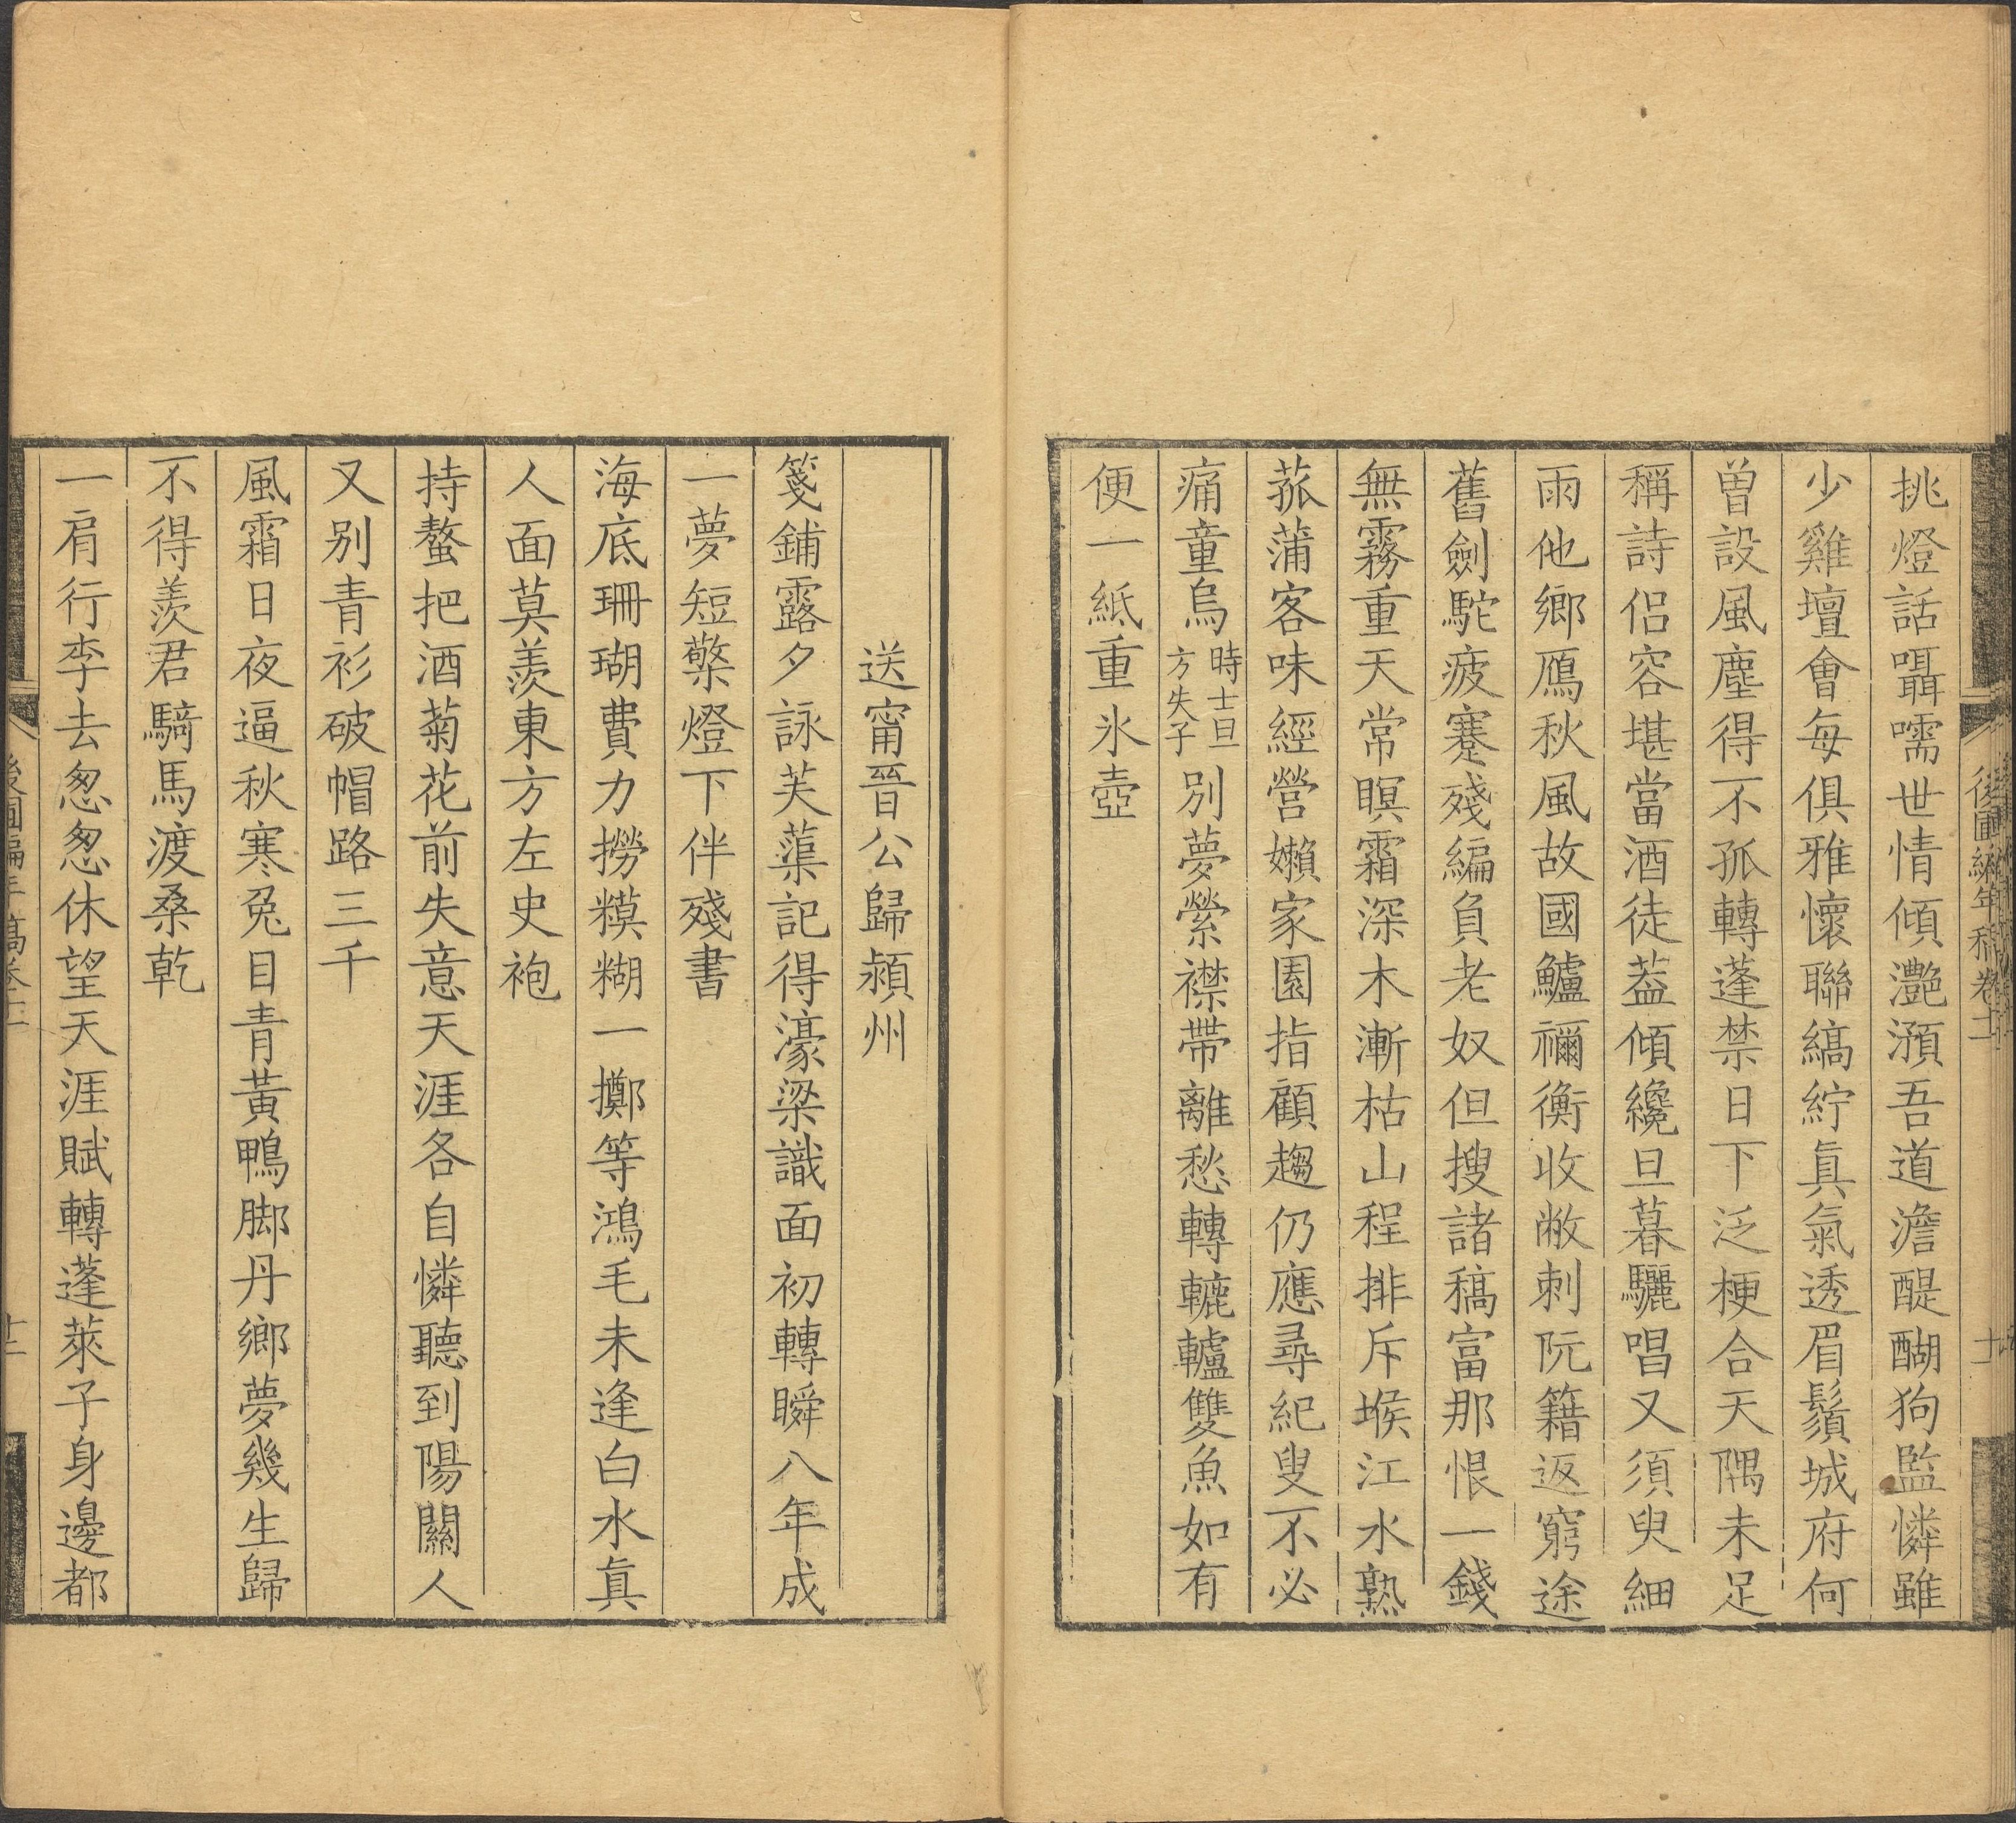 挑燈話囁嚅世情傾灧澦吾道澹醍醐狗監憐雖
少雞壇會每俱雅懷聯縞紵眞氣透眉鬚城府何
曾設風塵得不孤轉蓬禁日下泛梗合天隅未足
稱詩侶容堪當酒徒葢傾纔旦暮驪唱又須臾細
雨他鄉鴈秋風故國鱸禰衡收敝刺阮籍返窮途
舊劍駝疲蹇殘編負老奴但搜諸稿富那恨一錢
無霧重天常暝霜深木漸枯山程排斥堠江水熟
菰蒲客味經營嬾家園指顧趨仍應尋紀叟不必
痛童烏時士旦方失子別夢縈襟帶離愁轉轆轤雙魚如有
便一紙重氷壺
後圃編年稿卷十一
十一
送甯晉公歸潁州
箋鋪露夕詠芙蕖記得濠梁識面初轉瞬八年成
一夢短檠燈下伴殘書
海底珊瑚費力撈糢糊一擲等鴻毛未逢白水眞
人面莫羨東方左史袍
持螯把酒菊花前失意天涯各自憐聽到陽關人
又別青衫破帽路三千
風霜日夜逼秋寒兔目青黃鴨脚丹鄉夢幾生歸
不得羨君騎馬渡桑乾
一肩行李去怱怱休望天涯賦轉蓬萊子身邊都
後圃編年稿卷十一